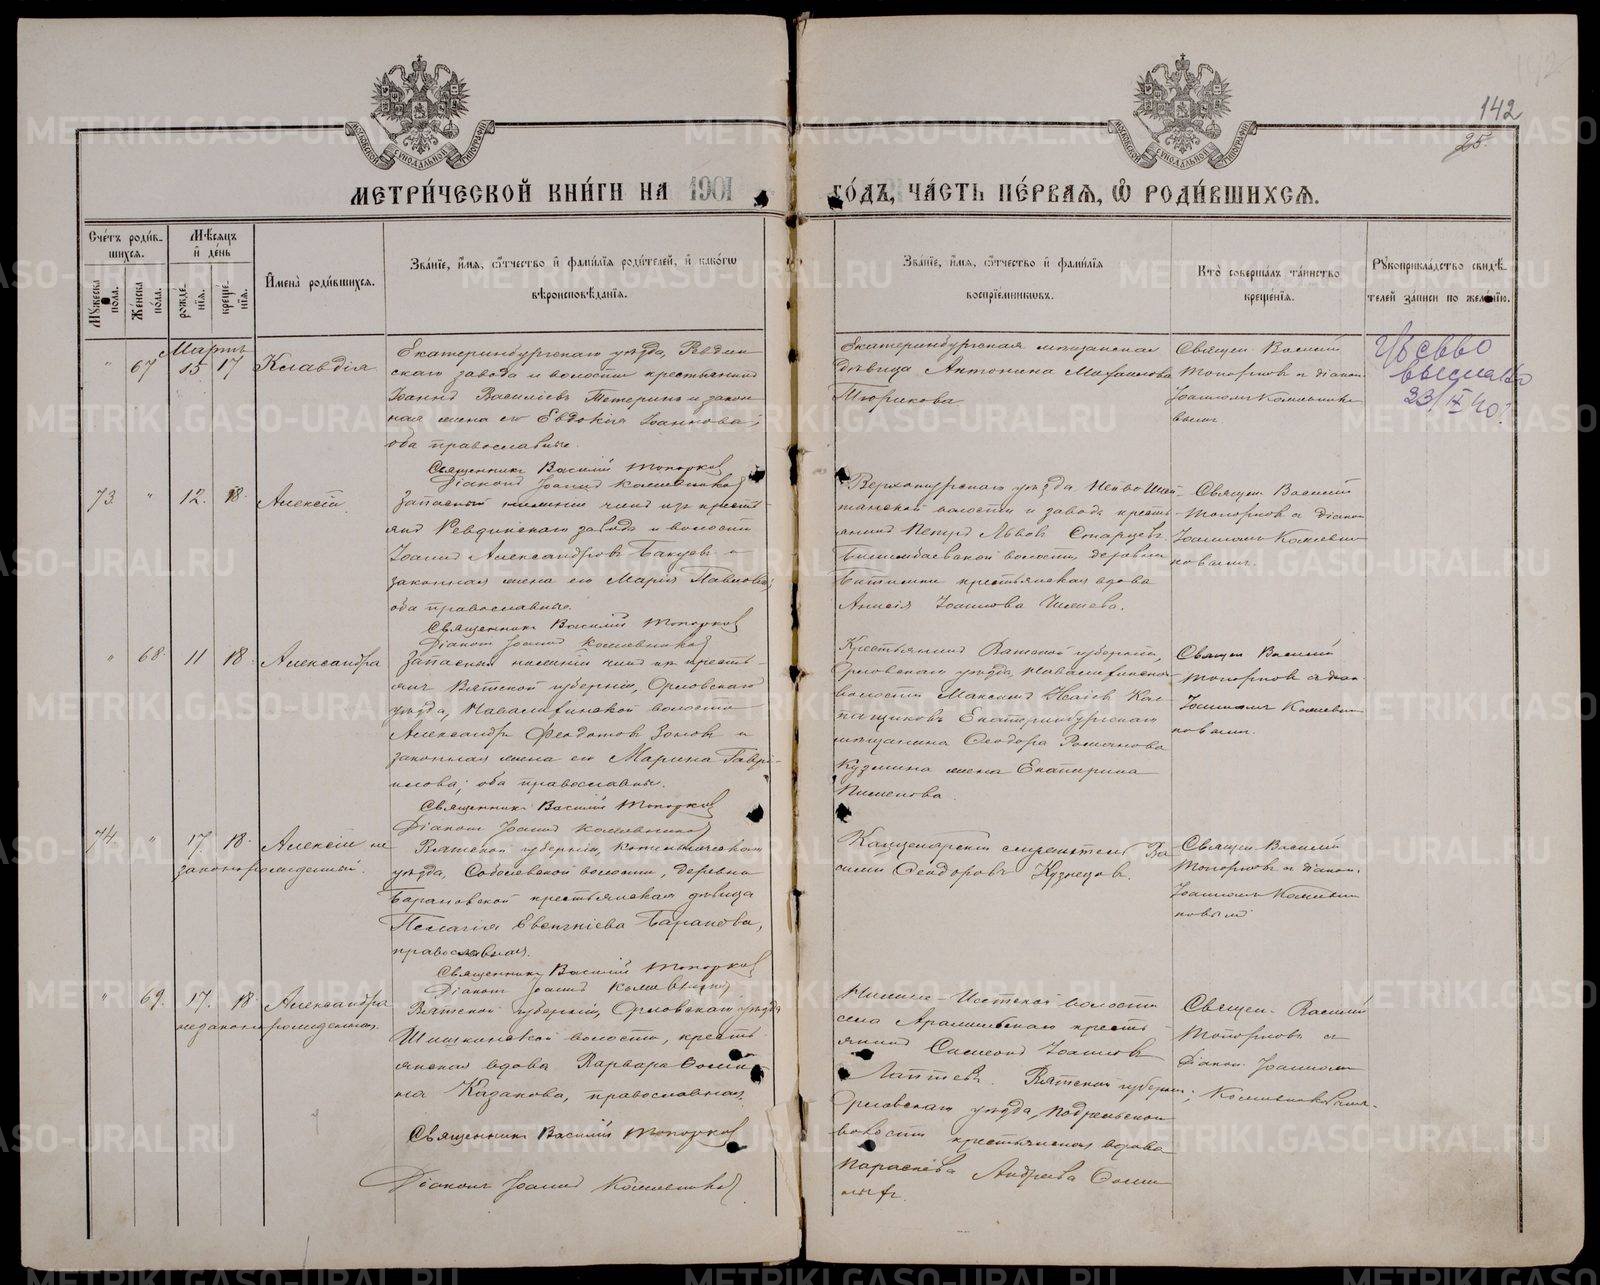 142
25.
МОСКОВСКОЙ СѴНОДАЛЬНОЙ ТИПОГРАФІИ
МОСКОВСКОЙ СѴНОДАЛЬНОЙ ТИПОГРАФІИ
МЕТРИ́ЧЕСКОЙ КНИ́ГИ НА 1901 ГО́ДЪ, ЧА́СТЬ ПЕ́РВАѦ, Ѡ РОДИ́ВШИХСѦ.
Сче́тъ роди́в-
шихся.
Мꙋжеска
по́ла.
Же́нска
по́ла.
Мѣ́сяцъ
и҆ де́нь
рожде́-
нїѧ.
креще́-
нїѧ.
И҆мена̀ роди́вшихсѧ.
Зва́нїе, и҆́мѧ, ѻ҆́тчество и҆ фами́лїѧ роди́телей, и҆ како́гѡ
вѣроисповѣ́данїѧ.
Зва́нїе, и҆́мѧ, ѻ҆́тчество и҆ фами́лїѧ
воспрїе́мникѡвъ.
Кто̀ соверша́лъ та́инство
креще́нїѧ.
Рꙋкоприкла́дство свидѣ́-
телей за́писи по жела́нїю.
Мартъ
" 67 15 17 Клавдія
Екатеринбургскаго уѣзда, Ревдин-
скаго завода и волости крестьянинъ
Іоаннъ Василіевъ Тетеринъ и закон-
ная жена его Евдокія Іоаннова;
оба православные.
Священникъ Василій Топорковъ
Діаконъ Іоаннъ Кожевниковъ
Екатеринбургская мѣщанская
дѣвица Антонина Михаилова
Тюрикова
Священ. Василій
Топорковъ и діакон.
Іоанномъ Кожевнико-
вымъ.
23/IX 40
73. " 12. 18. Алексій
Запасный нижній чинъ изъ кресть-
янъ Ревдинскаго завода и волости
Іоаннъ Александровъ Бакуевъ и
законная жена его Марія Павлова;
оба православные.
Священникъ Василій Топорковъ
Діаконъ Іоаннъ Кожевниковъ
Верхотурскаго уѣзда Нейво Шай-
танской волости и завода кресть-
янинъ Петръ Львовъ Старцевъ.
Билимбаевской волости, деревни
крестьянская вдова
Анисія Іоаннова
Священ. Василій
Топорковъ и діакон.
Іоанномъ Кожевни-
ковымъ.
" 68. 11 18. Александра
Запасный нижній чинъ изъ кресть-
янъ Вятской губерніи, Орловскаго
уѣзда, волости
Александръ Феодотовъ Зоновъ и
законная жена его Марина Гаврі-
илова; оба православные.
Священникъ Василій Топорковъ
Діаконъ Іоаннъ Кожевниковъ
Крестьянинъ Вятской губерніи,
Орловскаго уѣзда,
волости Максимъ Исаіевъ
Екатеринбургскаго
мѣщанина Ѳеодора Романова
Кузмина жена Екатерина
Пименова.
Священ. Василій
Топорковъ и діакон.
Іоанномъ Кожевни-
ковымъ.
74. " 17. 18. Алексій не
законнорожденный.
Вятской губерніи, Котельническаго
уѣзда, Соболевской волости, деревни
Барановской крестьянская дѣвица
Пелагія Евгеніева Баранова,
православная.
Священникъ Василій Топорковъ
Діаконъ Іоаннъ Кожевниковъ
Канцелярскій служитель Ва-
силій Ѳеодоровъ Кузнецовъ.
Священ. Василій
Топорковъ и діакон.
Іоанномъ Кожевни-
ковымъ
" 69. 17. 18. Александра
незаконнорожденная.
Вятской губерніи, Орловскаго уѣзда
Шишкинской волости, кресть-
янская вдова Варвара Ѳоми-
на Казакова, православная.
Священникъ Василій Топорковъ
Діаконъ Іоаннъ Кожевниковъ
Нижне-Исетской волости
села Арамильскаго кресть-
янинъ Симеонъ Іоанновъ
Лаптевъ. Вятской губерніи,
Орловскаго уѣзда, Подрельской
волости крестьянская вдова
Параскева Андреева
Священ. Василій
Топорковъ и
діакон. Іоанномъ
Кожевниковымъ.